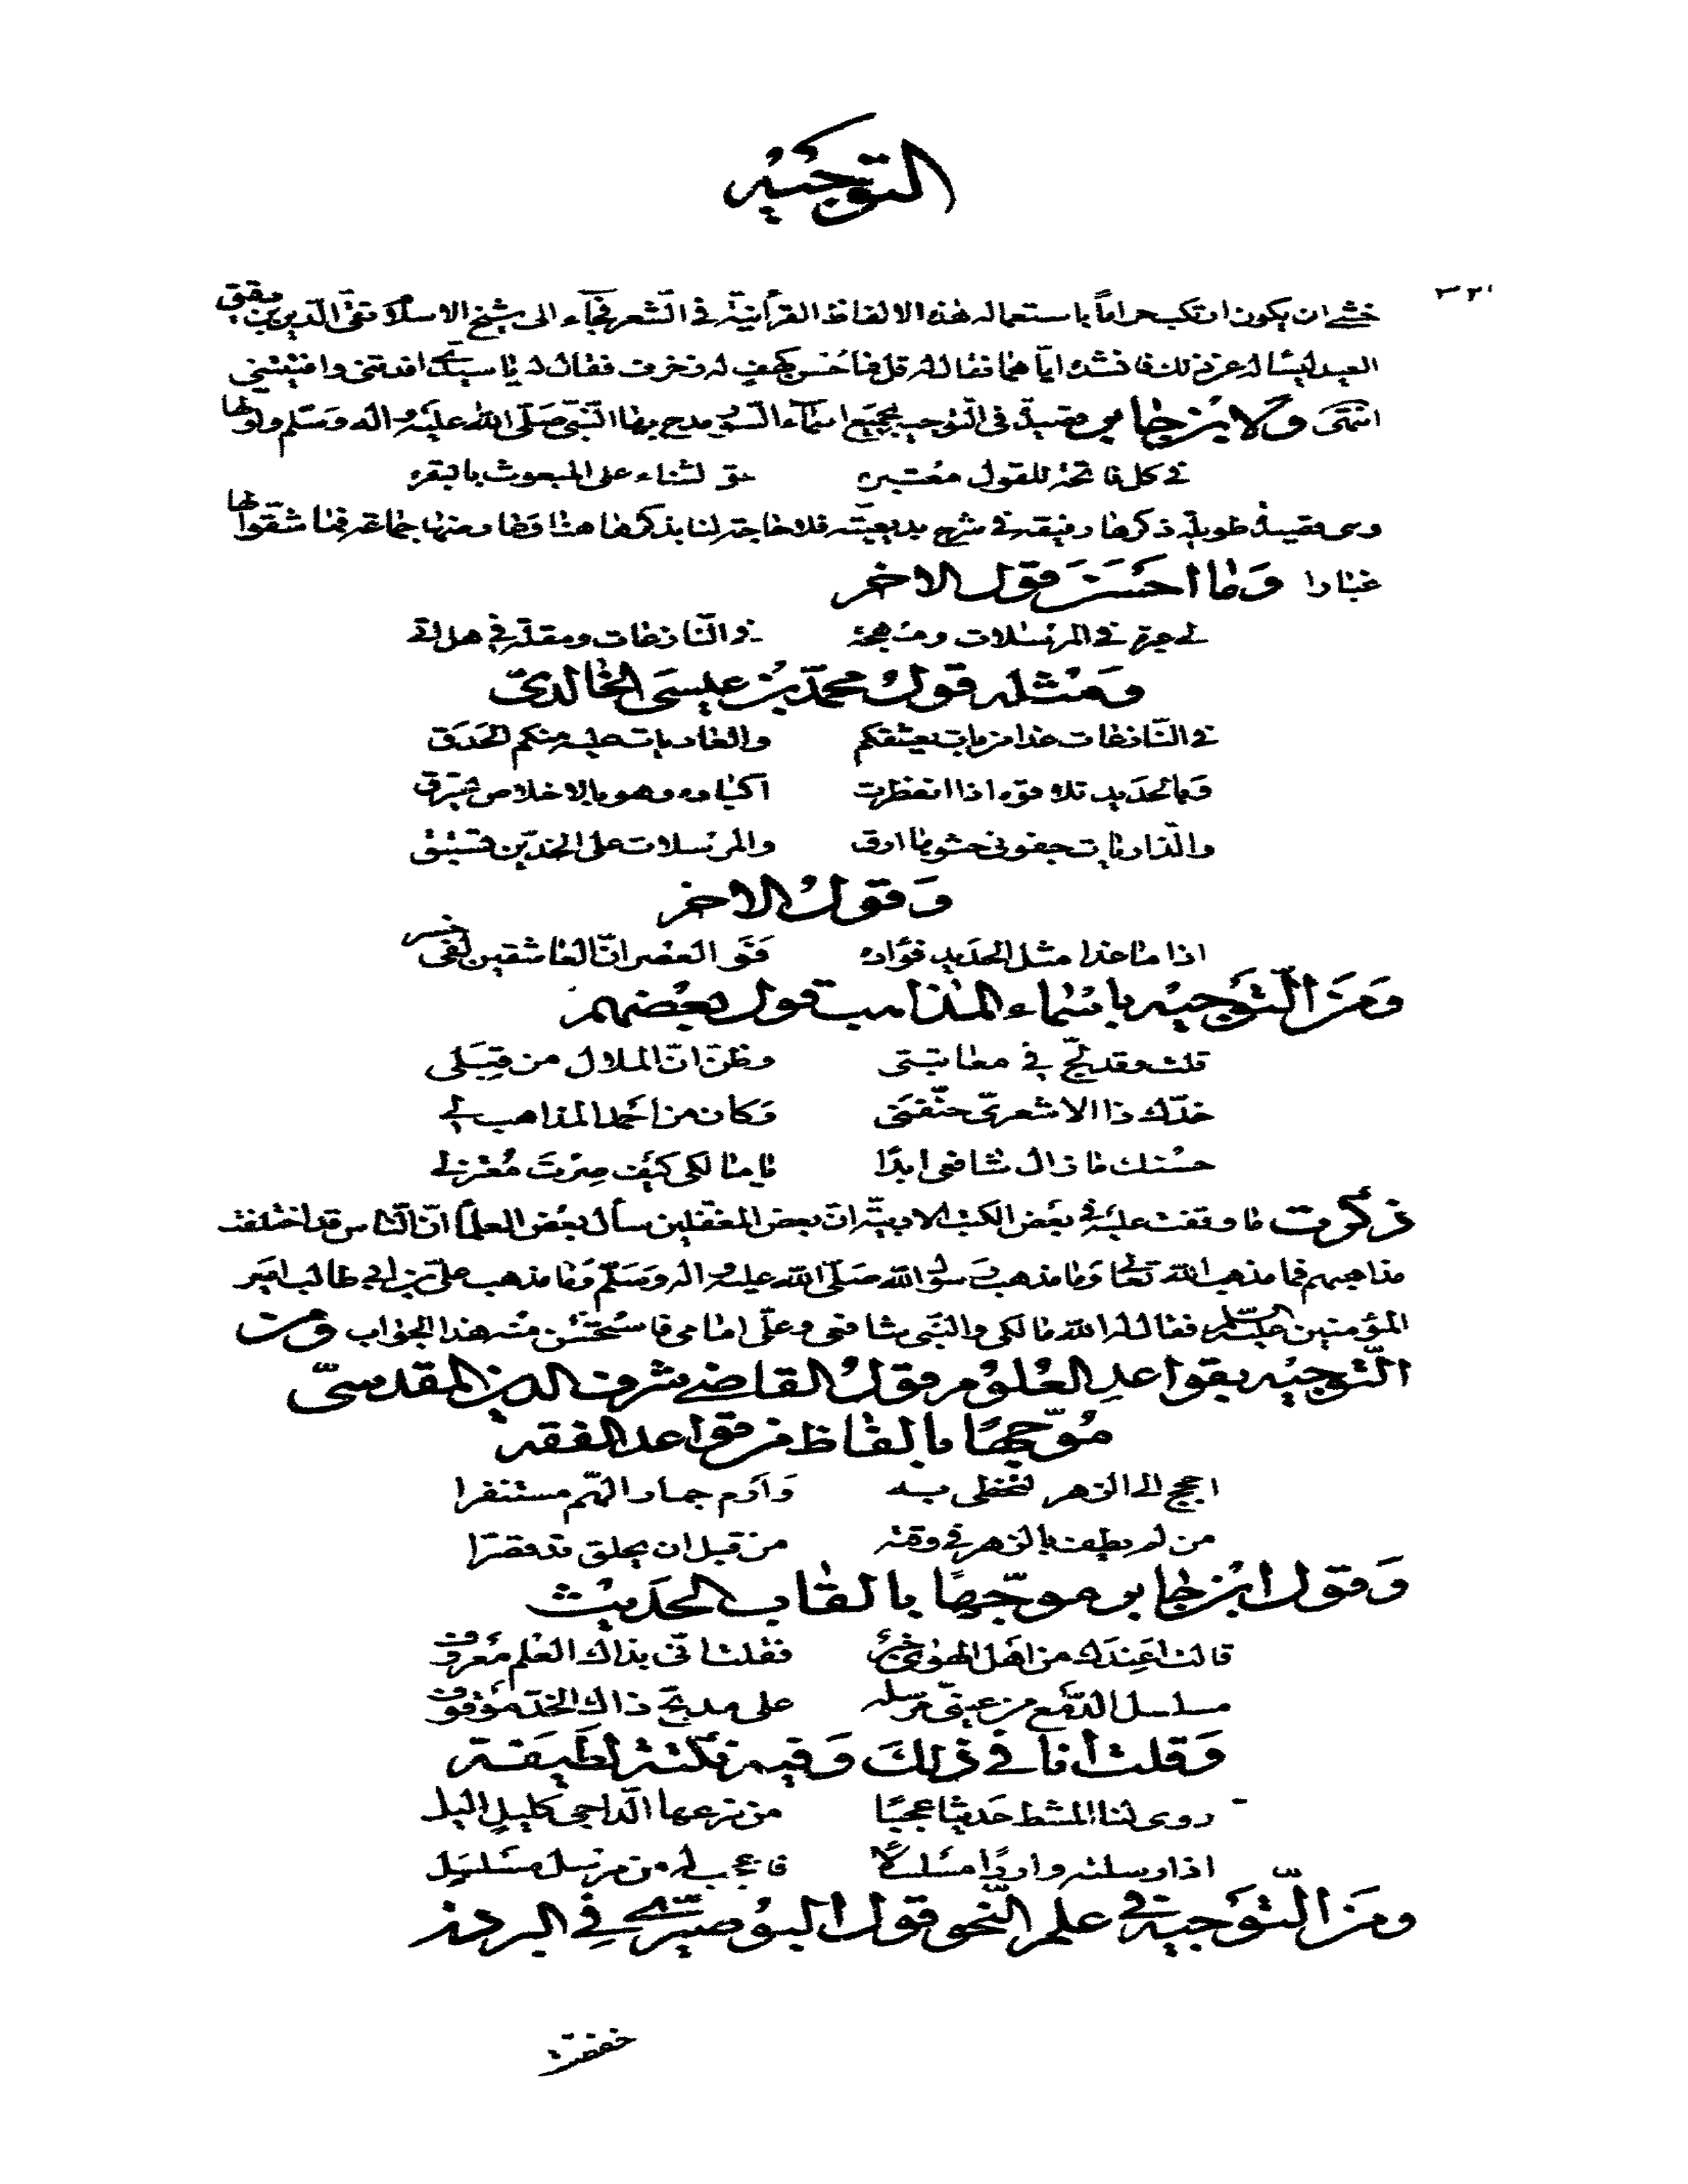 التوجيه
خشى ان يكون ارتكب حراماً باستعماله هذه الالفاظ القرأنية فى الشعر فجآء الى شيخ الاسلام تقى الدين بن دقيق
العيد ليسأله عن ذلك فانشده اياهما فقال له قل فما حُسن كهف له زخرف فقال له يا سيدى افدتنى وافتيتنى
انتهى ولابن جابر قصيدة فى التوجيه بجميع اسمآء السور مدح بها النبى صلى الله عليه واله وسلم واولها
فى كل فاتحة للقول معتبره حق الثناء على المبعوث بالبقره
وهى قصيدة طويلة ذكرها رفيقه فى شرح بديعيته فلا حاجة لنا بذكرها هذا وعارضها جماعة فما شقوا لها
غبارا وما احسن قول الاخر
لى عبرة فى المرسلات ومهجة فى النازعات ومقلة فى هل اتى
ومثله قول محمد بن عيسى الخالدى
فى النازعات غدا من بات يعشقكم والعاديات عليه منكم الحدق
وبالحديد تلاقوه اذا انفطرت اكباده وهو بالاخلاص يحترق
والذاريات جفونى حشوها ارق والمرسلات على الخدين تستبق
وقول الاخر
اذا ما غدا مثل الحديد فؤاده فو العصر ان العاشقين لفى خسر
ومن التوجيه باسماء المذاهب قول بعضهم
قلت وقد لج فى معاتبتى وظن ان الملال من قبلى
خدك ذا الاشعرى حنفنى وكان من احمد المذاهب لى
حسنك ما زال شافعى ابدًا يا مالكى كيف صرت معتزلى
ذكرت ما وقفت عليه فى بعض الكتب الادبية ان بعض المغفلين سأل بعض العلمآ ان الناس قد اختلفت
مذاهبهم فما مذهب الله تعالى وما مذهب رسول الله صلى الله عليه واله وسلم وما مذهب على بن ابى طالب امير
المؤمنين عليه السلام فقال له الله مالكى والنبى شافعى وعلى امامى فاستحسن منه هذا الجواب ومن
التوجيه بقواعد العلوم قول القاضى شرف الدين المقدسى
موجهًا بالفاظ من قواعد الفقه
احجج الى الزهر لتحظى به وارم جمار الهم مستنفرا
من لم يطف بالزهر فى وقته من قبل ان يحلق قد قصرا
وقول ابن جابر موجهًا بالقاب الحديث
قالت اعندك من اهل الهوى خبر فقلت انى بذاك العلم معروف
مسلسل الدمع من عينى مرسله على مدبج ذاك الخد موقوف
وقلت انا فى ذلك وفيه نكتة لطيفة
روى لنا المشط حديثا عجبًا من فرعها الداجى كليل اليل
اذا رسلته واردًا مسلسلًا فاعجب له من مرسل مسلسل
ومن التوجيه فى علم النحو قول البوصيرى فى البردة
خفضت